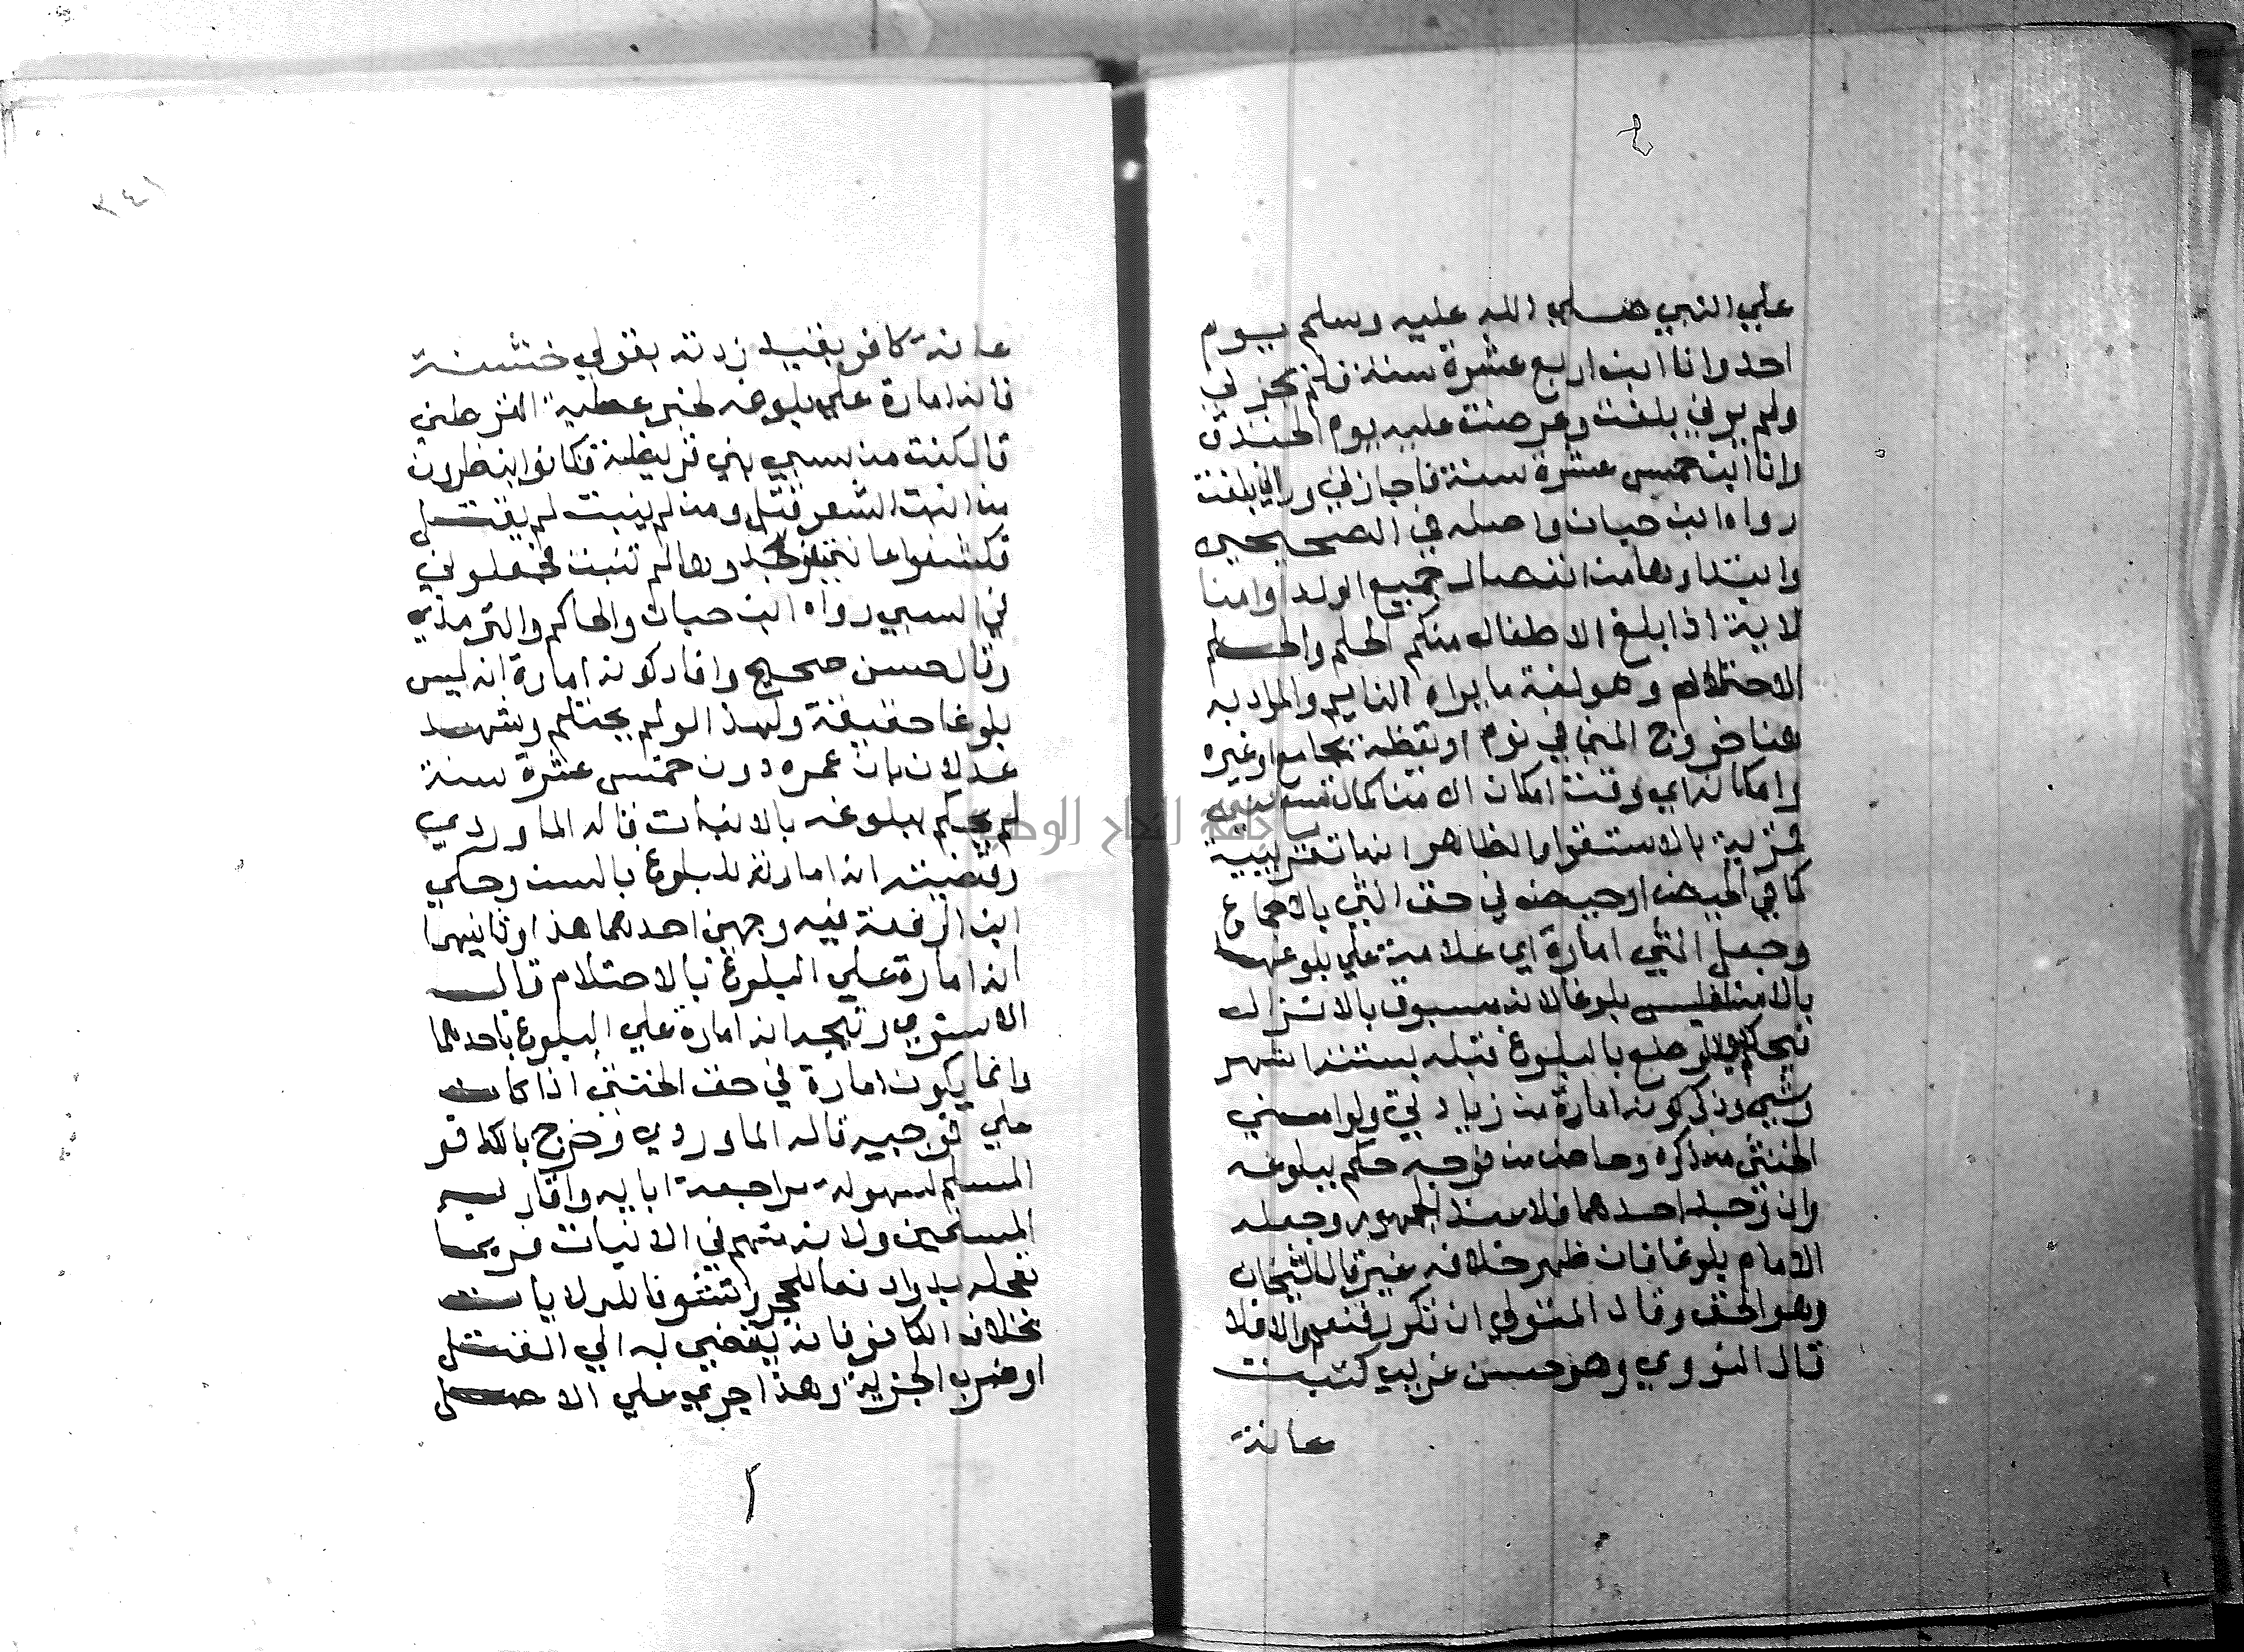 علي النبي صلي الله عليه وسلم يوم
احد وانا ابن اربع عشرة سنة فلم يجزني
ولم يرني بلغت وعرضت عليه يوم الخندق
وانا ابن خمس عشرة سنة فاجازني وراني بلغت
رواه ابن حبان واصله في الصحيحين
وابتداوها من انفصال جميع الولد او امنا
لاية اذا بلغ الاطفال منكم الحلم والحلم
الاحتلام وهو لغة ما يراه النايم والمراد به
هنا خروج المني في نوم او يقظة بجماع او غيره
وامكانه اي وقت امكان الامنا كمال تسع سنين
قمرية بالاستقرا والظاهر انها تقريبية
كما في الحيض او حيض في حق انثي بالاجماع
وحبل انثي امارة اي علامة علي بلوغها
بالامنا فليس بلوغا لانه مسبوق بالانزال
فيحكم بعد الوضع بالبلوغ قبله بستة اشهر
وشي وذكر كونه امارة من زيادتي ولو امني
الخنثي من ذكره وحاض من فرجه حكم ببلوغه
وان وجد احدهما فلا عند الجمهور وجعله
الامام بلوغا فان ظهر خلافه غير قال الشيخان
وهو الحق وقال المتولي ان تكرر فنعم والا فلا
قال النووي وهو حسن غريب كنبت
عانة
٢٤١
عانة كافر بقيد زدته بقولي خشنة
فانه امارة علي بلوغه لخبر عطية القرظي
قال كنت من سبي بني قريظة فكانوا ينظرون
من انبت الشعر قتل ومن لم ينبت لم يقتل
فكشفوا عانتي فوجدوها لم تنبت فجعلوني
في السبي رواه ابن حبان والحاكم والترمذي
وقال حسن صحيح وافاد كونه امارة انه ليس
بلوغا حقيقة ولهذا لو لم يحتلم وشهد
عدلان بان عمره دون خمس عشرة سنة
لم يحكم ببلوغه بالانبات قاله الماوردي
وقضيته انه امارة للبلوغ بالسن وحكي
ابن الرفعة فيه وجهين احدهما هذا وثانيهما
انه امارة علي البلوغ بالاحتلام قال
الاسنوي ويتجه انه امارة علي البلوغ باحدهما
وانما يكون امارة في حق الخنثي اذا كان
علي فرجيه قاله الماوردي وخرج بالكافر
المسلم لسهولة مراجعة ابايه واقاربه
المسلمين ولانه متهم في الانبات فربما
تعجله بدوا دفعا للحجر وتشوفا للولايات
بخلاف الكافر فانه يفضي به الي القتل
او ضرب الجزية وهذا جري علي الاصل